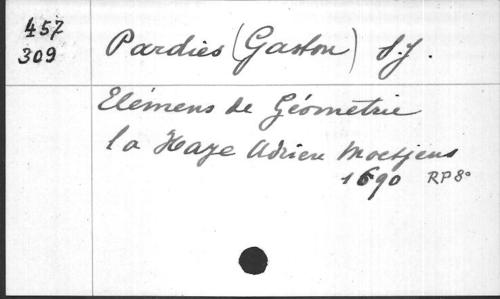 457
309
Pardies (Gaston) S.J.
Elémens de Géométrie
la Haye Adrien Moetjens
1690 RP 8°